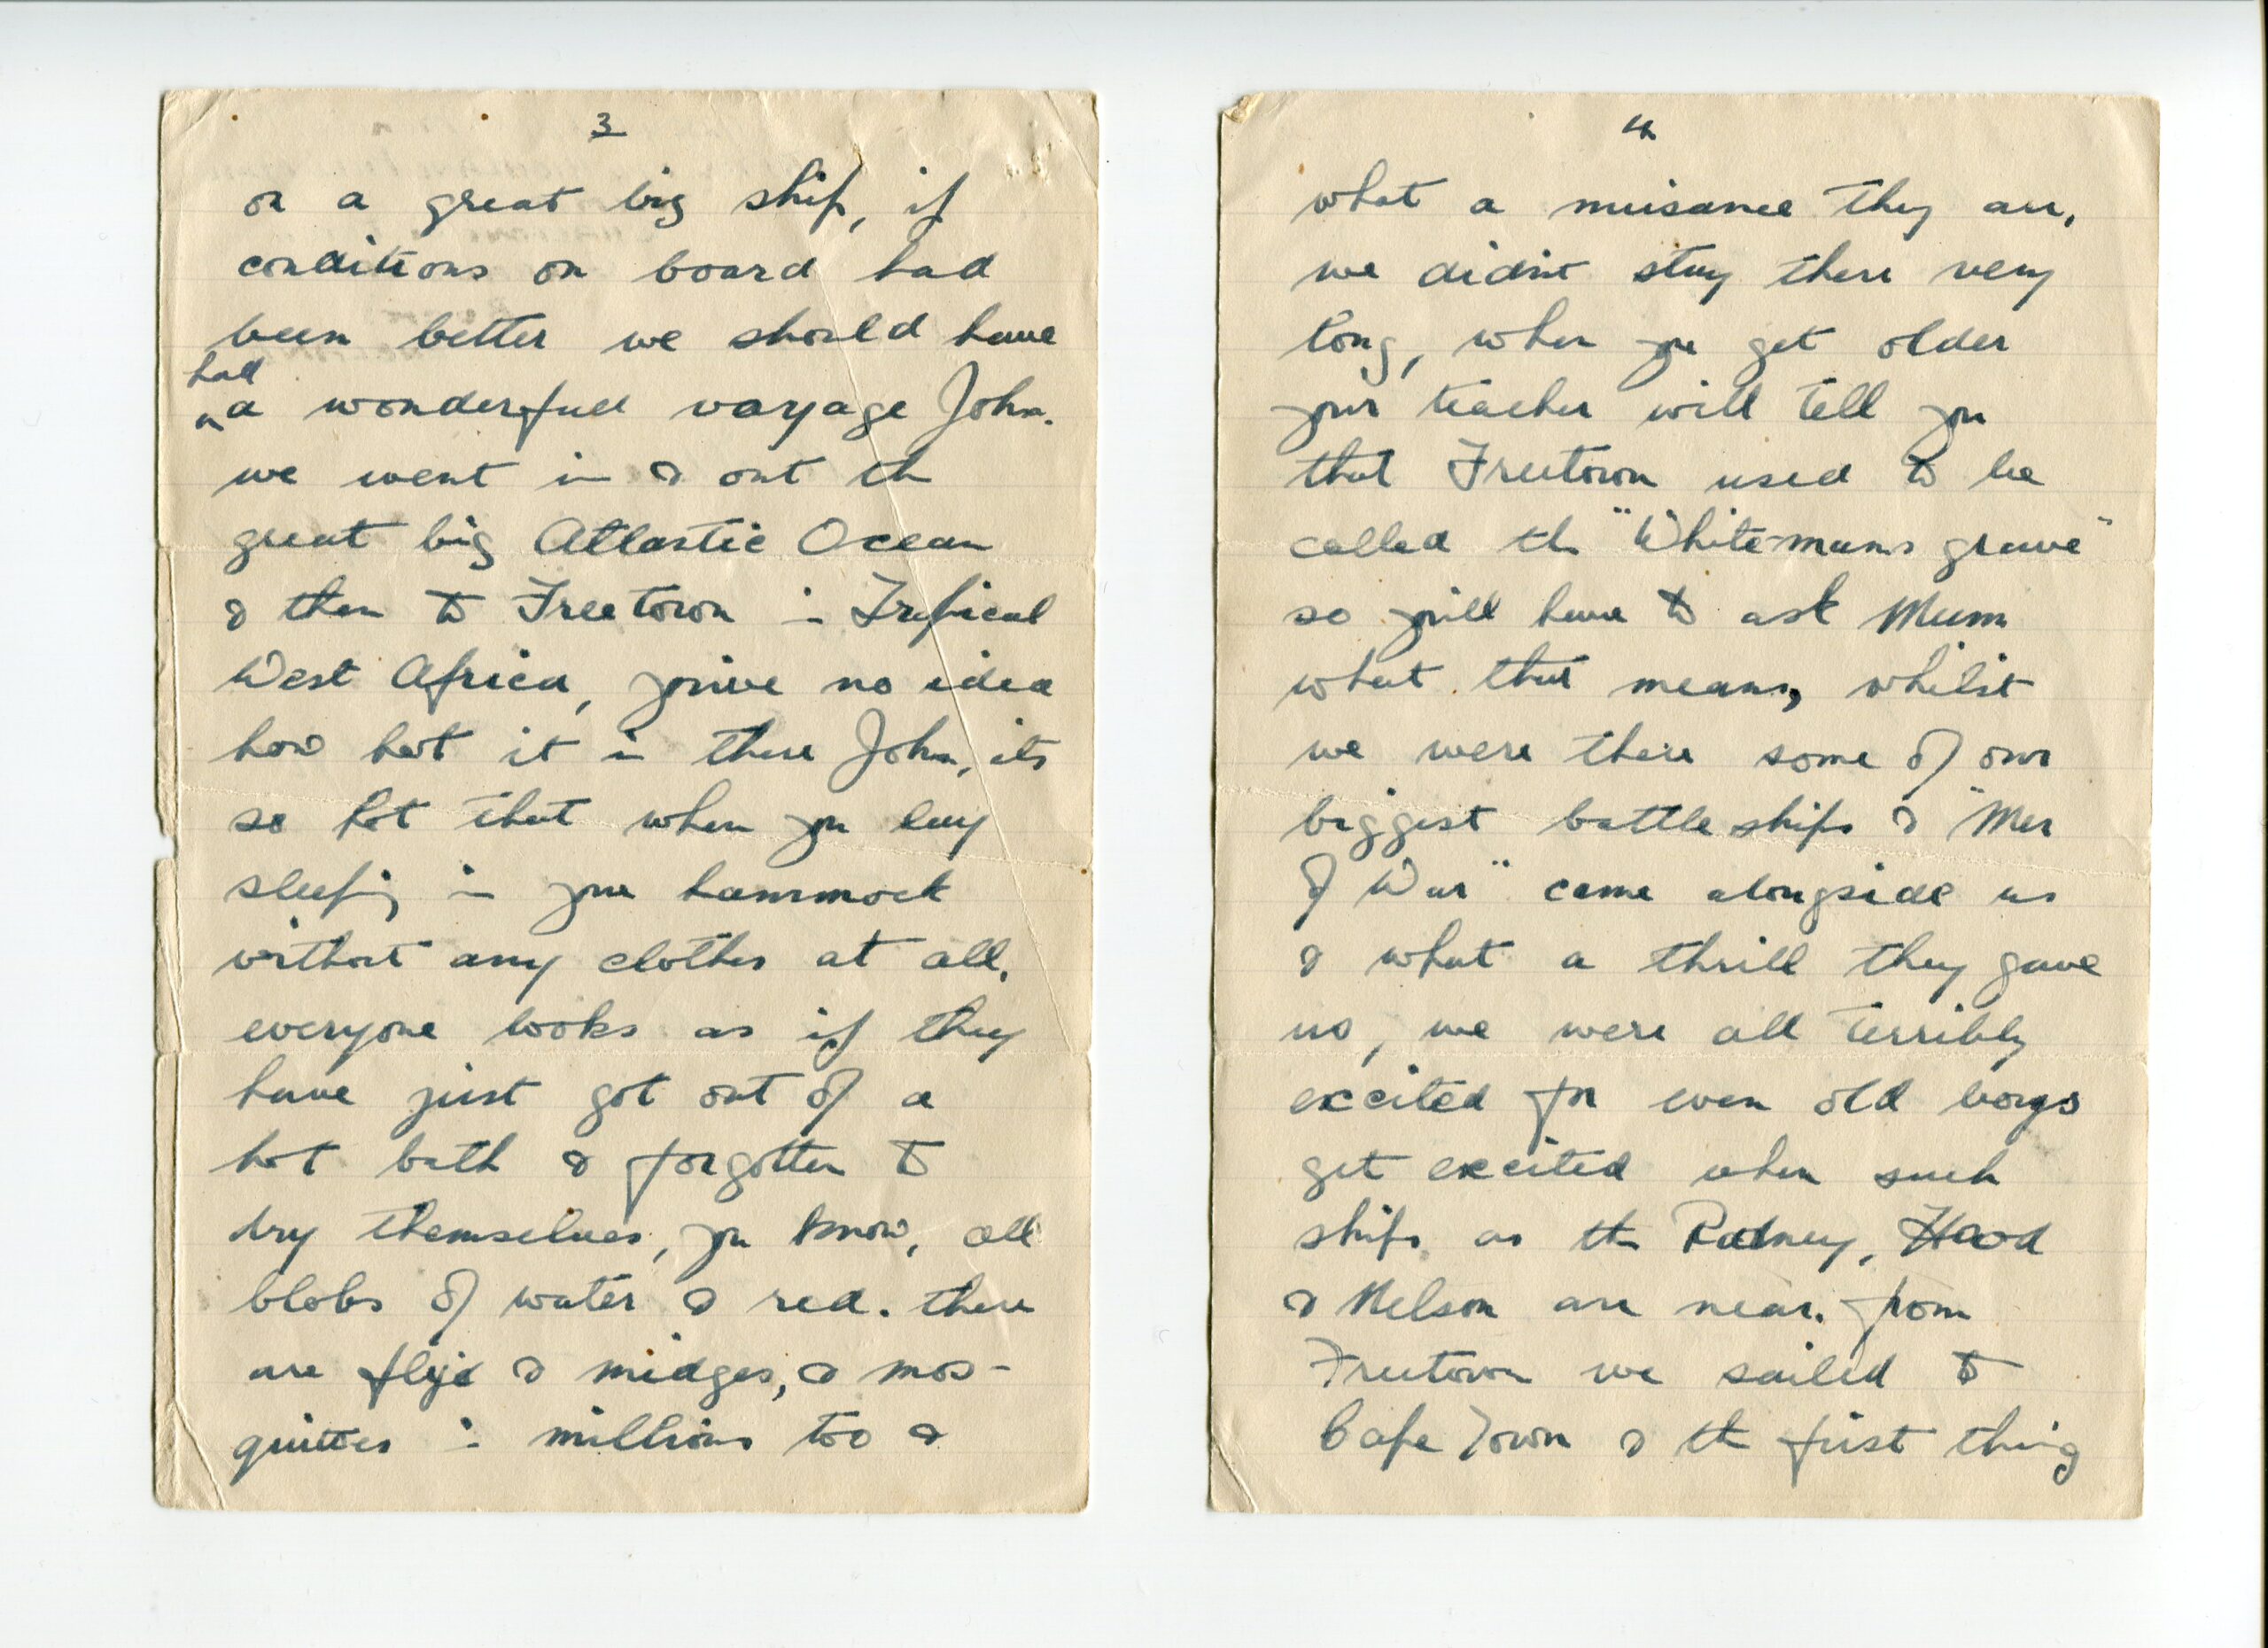 3
on a great big ship, if
conditions on board had
been better we should have
had
^a wonderfull voyage John.
we went in & out the
great big Atlantic Ocean
& then to Freetown in Tropical
West Africa, youve no idea
how hot it is there John, its
so hot that when you lay
sleeping in your hammock
without any clothes at all,
everyone looks as if they
have just got out of a
hot bath & forgotten to
dry themselves, you know, all
blobs of water & red. there
are flys & midges, & mos-
quittoes in millions too &
4
what a nuisance they are,
we didnt stay there very
long, when you get older
your teacher will tell you
that Freetown used to be
called the "Whitemans grave"
so you'll have to ask Mum
what that means, whilst
we were there some of our
biggest battleships & "Men
of War" came alongside us
& what a thrill they gave
us, we were all terribly
excited for even old boys
get excited when such
ships as the Rodney, Hood
& Nelson are near. from
Freetown we sailed to
Cape Town & the first thing